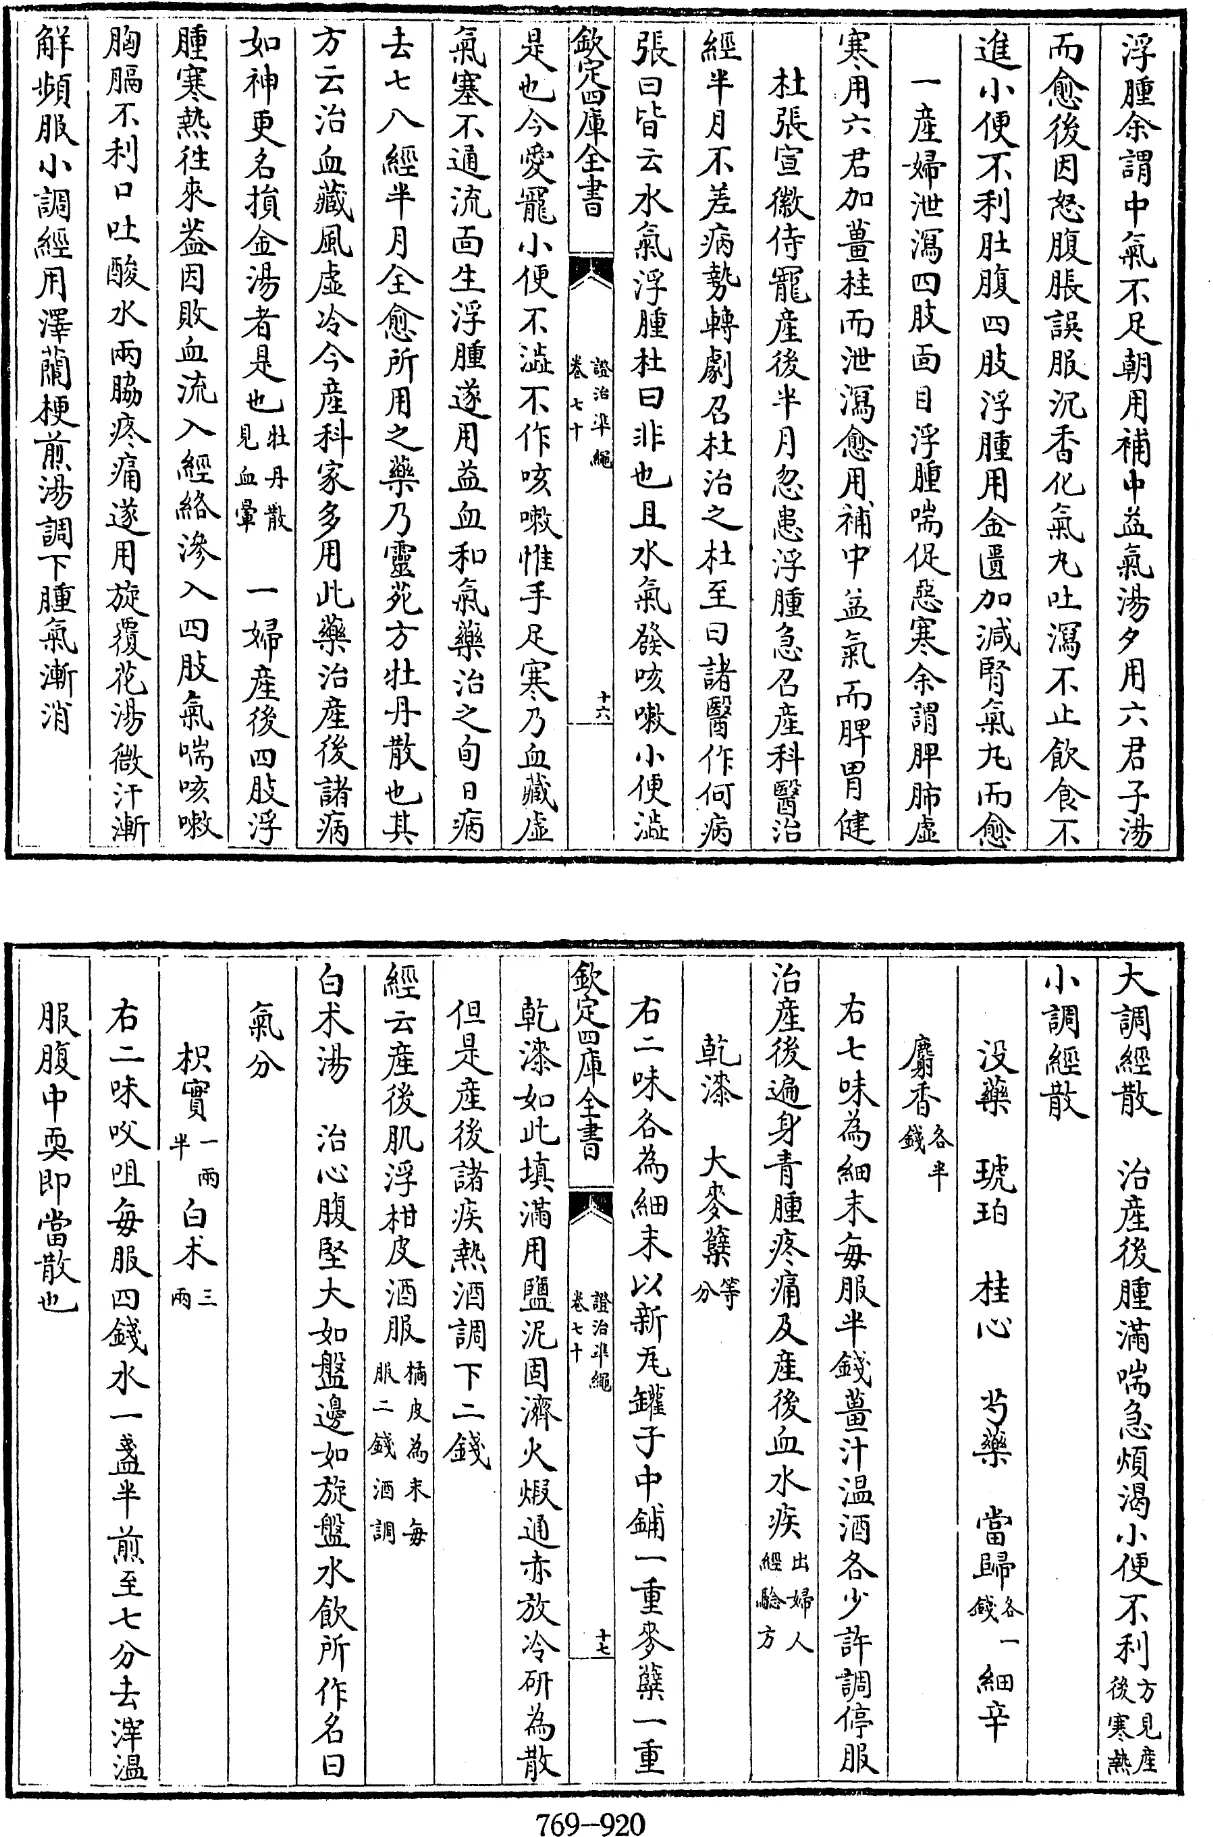 浮腫余謂中氣不足朝用補中益氣湯夕用六君子湯
而愈後因怒腹脹誤服沉香化氣丸吐瀉不止飲食不
進小便不利肚腹四肢浮腫用金匱加減腎氣丸而愈
一産婦泄瀉四肢面目浮腫喘促惡寒余謂脾肺虚
寒用六君加薑桂而泄瀉愈用補中益氣而脾胃健
杜張宣徽侍寵産後半月忽患浮腫急召産科醫治
經半月不差病勢轉劇召杜治之杜至曰諸醫作何病
張曰皆云水氣浮腫杜曰非也且水氣發咳嗽小便澁
欽定四庫全書
證治準繩
卷七十
十六
是也今愛寵小便不澁不作咳嗽惟手足寒乃血藏虚
氣塞不通流面生浮腫遂用益血和氣藥治之旬日病
去七八經半月全愈所用之藥乃靈苑方牡丹散也其
方云治血藏風虚冷今産科家多用此藥治産後諸病
如神更名損金湯者是也牡丹散見血暈 一婦産後四肢浮
腫寒熱徃來葢因敗血流入經絡滲入四肢氣喘咳嗽
胸膈不利口吐酸水兩脇疼痛遂用旋覆花湯微汗漸
觧頻服小調經用澤蘭梗煎湯調下腫氣漸消
大調經散 治産後腫滿喘急煩渴小便不利方見産後寒熱
小調經散
没藥 琥珀 桂心 芍藥 當歸各一錢 細辛
麝香各半錢
右七味為細末每服半錢薑汁温酒各少許調停服
治産後遍身青腫疼痛及産後血水疾出婦人經驗方
乾漆 大麥糵等分
右二味各為細末以新瓦罐子中鋪一重麥糵一重
欽定四庫全書
證治準繩
卷七十
十七
乾漆如此填滿用鹽泥固濟火煅通赤放冷研為散
但是産後諸疾熱酒調下二錢
經云産後肌浮柑皮酒服橘皮為末每服二錢酒調
白术湯 治心腹堅大如盤邊如旋盤水飲所作名曰
氣分
枳實一兩半 白术三兩
右二味㕮咀每服四錢水一盞半煎至七分去滓温
服腹中耎即當散也
769--920